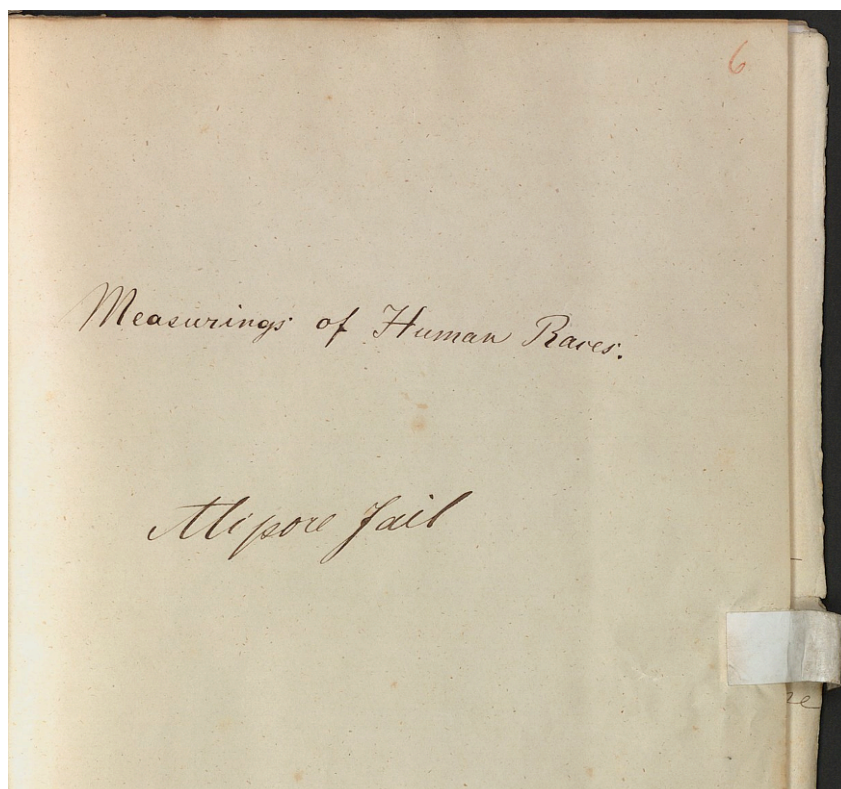 6
Measurings of Human Races.
Alipore Jail